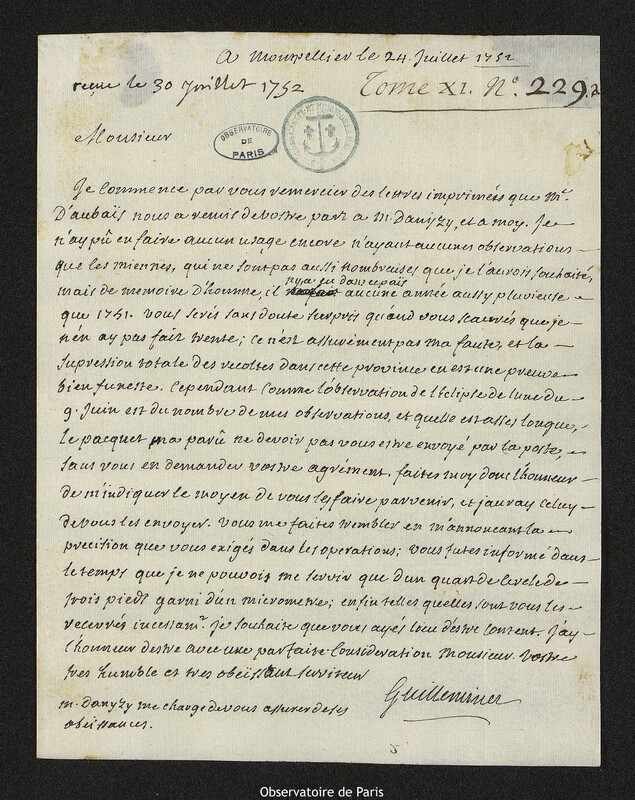 A Montpellier le 24. Juillet 1752
reçue le 30 Juillet 1752
Tome XI. N.° 229.2
OBSERVATOIRE
DE
PARIS
Monsieur
Je commence par vous remercier des lettres imprimées que Mr.
D'aubaïs nous a remis de vostre part a M. Danyzy, et a moy. Je
n'ay pû en faire aucun usage encore n'ayant aucunes observations
que les miennes, qui ne sont pas aussi nombreuses que je l'aurois souhaité,
mais de memoire D'homme, il n'y a eu dans ce païs aucune année aussy pluvieuse
que 1751. vous serés sans doute surpris quand vous scaurés que je
n'en ay pas fait trente; ce n'est assurement pas ma faute, et la
supression totale des recoltes dans cette province en est une preuve
bien funeste. Cependant comme l'observation de l'Eclipse de lune du
9. Juin est du nombre de mes observations, et quelle est asses longue,
le pacquet ma parû ne devoir pas vous estre envoyé par la poste,
sans vous en demander vostre agrément. faites moy donc l'honneur
de m'indiquer le moyen de vous les faire parvenir, et j'auray celuy
de vous les envoyer. vous me faites trembler en m'annoncant la
precision que vous exigés dans les operations; vous futes informé dans
le temps que je ne pouvois me servir que d'un quart de Cercle de
trois pieds garni d'un micrometre; enfin telles quelles sont vous les
recevrés incessamt. je souhaite que vous ayés lieu d'estre content. J'ay
l'honneur destre avec une parfaite Consideration Monsieur. Vostre
tres humble et tres obeïssant serviteur
Guilleminet
m. Danyzy me charge de vous assurer de ses
obeïssances.
Observatoire de Paris